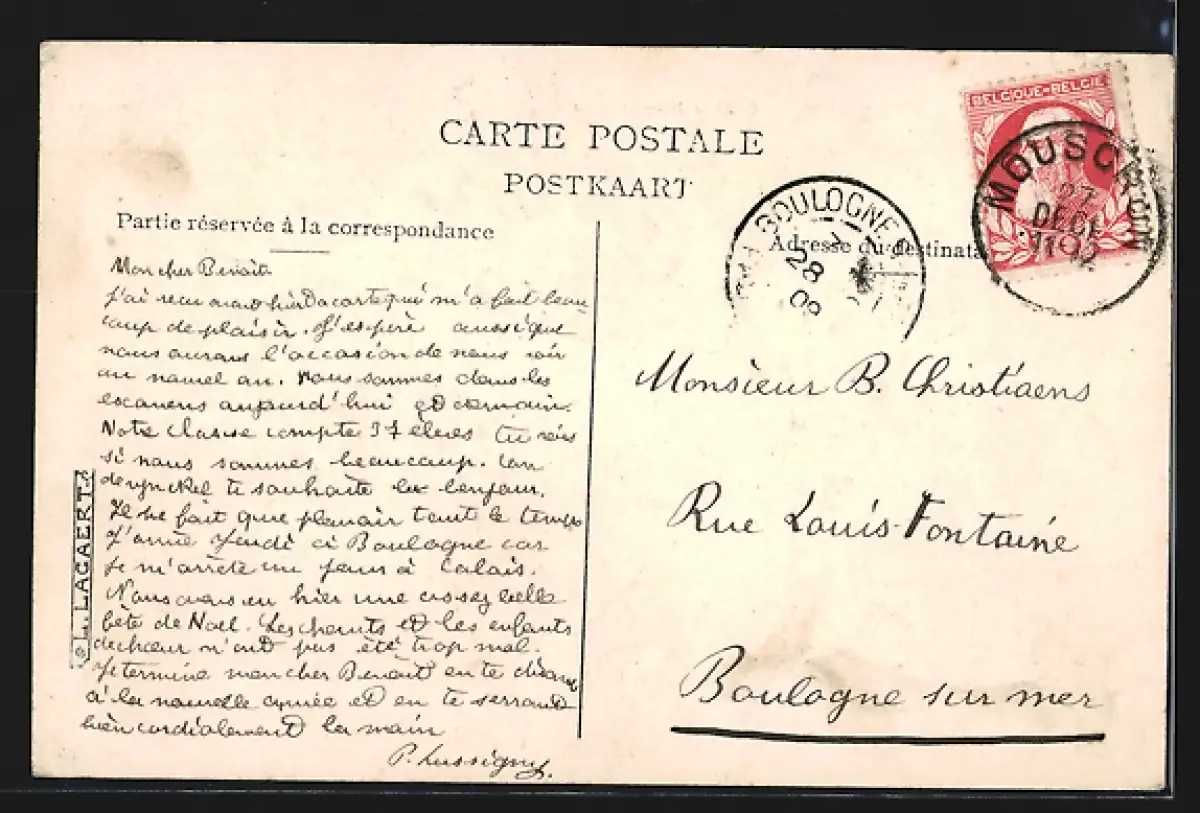 CARTE POSTALE
POSTKAART
Partie réservée à la correspondance
Adresse du destinata
BELGIQUE-BELGIË
MOUSCRON
27
DECE
BOULOGNE
28
Mon cher Benoit
J'ai recu avant hier ta carte qui m'a fait beau
coup de plaisir. J'espère aussi que
nous aurons l'occasion de nous voir
au nouvel an. Nous sommes dans les
examens aujourd'hui et demain.
Notre classe compte 37 élèves tu vois
si nous sommes beaucoup.
te souhaite le bonjour.
Il ne fait que pleuvoir tout le temps
J'arrive Jeudi à Boulogne car
je m'arrète un jour à Calais.
Nous avons eu hier une assez belle
fête de Noël. Les chants et les enfants
de chœur n'ont pas été trop mal.
Je termine mon cher Benoit en te
à la nouvelle année et en te serrant
bien cordialement la main
P. Lussigny.
Monsieur B. Christiaens
Rue Louis-Fontaine
Boulogne sur mer
L. LAGAERT